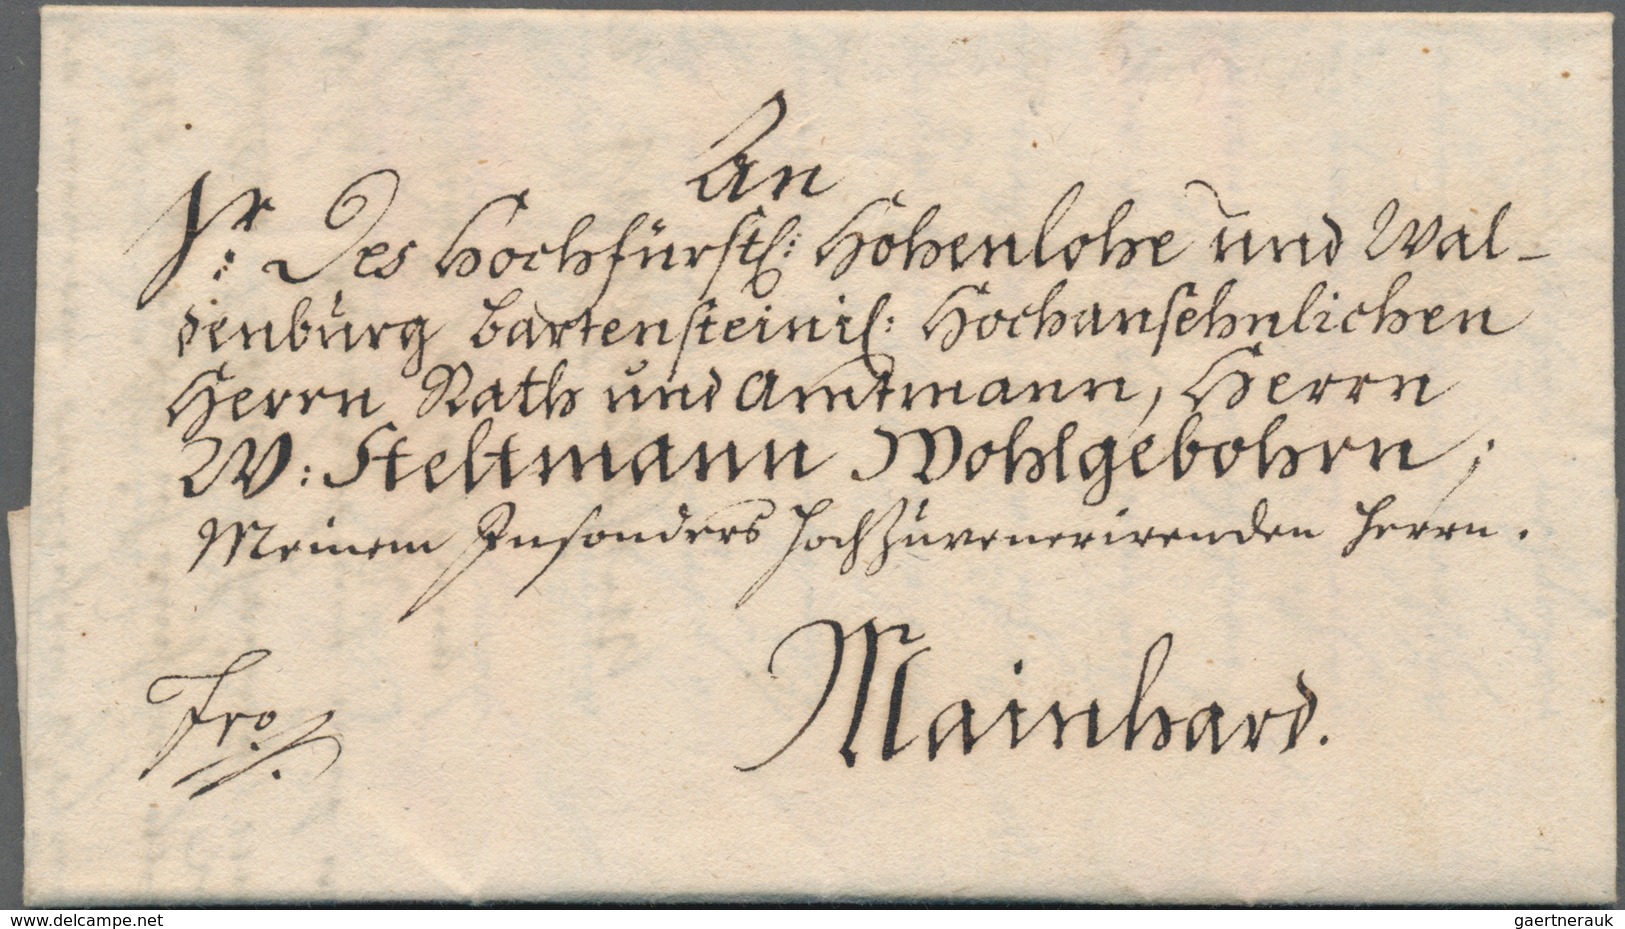 An
Sr: Des Hochfürstl: Hohenlohe und Wal-
denburg Bartensteinis: Hochansehnlichen
Herrn Rath und Amtmann, Herrn
W: Steltmann Wohlgebohrn,
Meinem Insonders HochZuvenerirenden Herrn.
Fro.
Mainhard.
www.delcampe.net
gaertnerauk